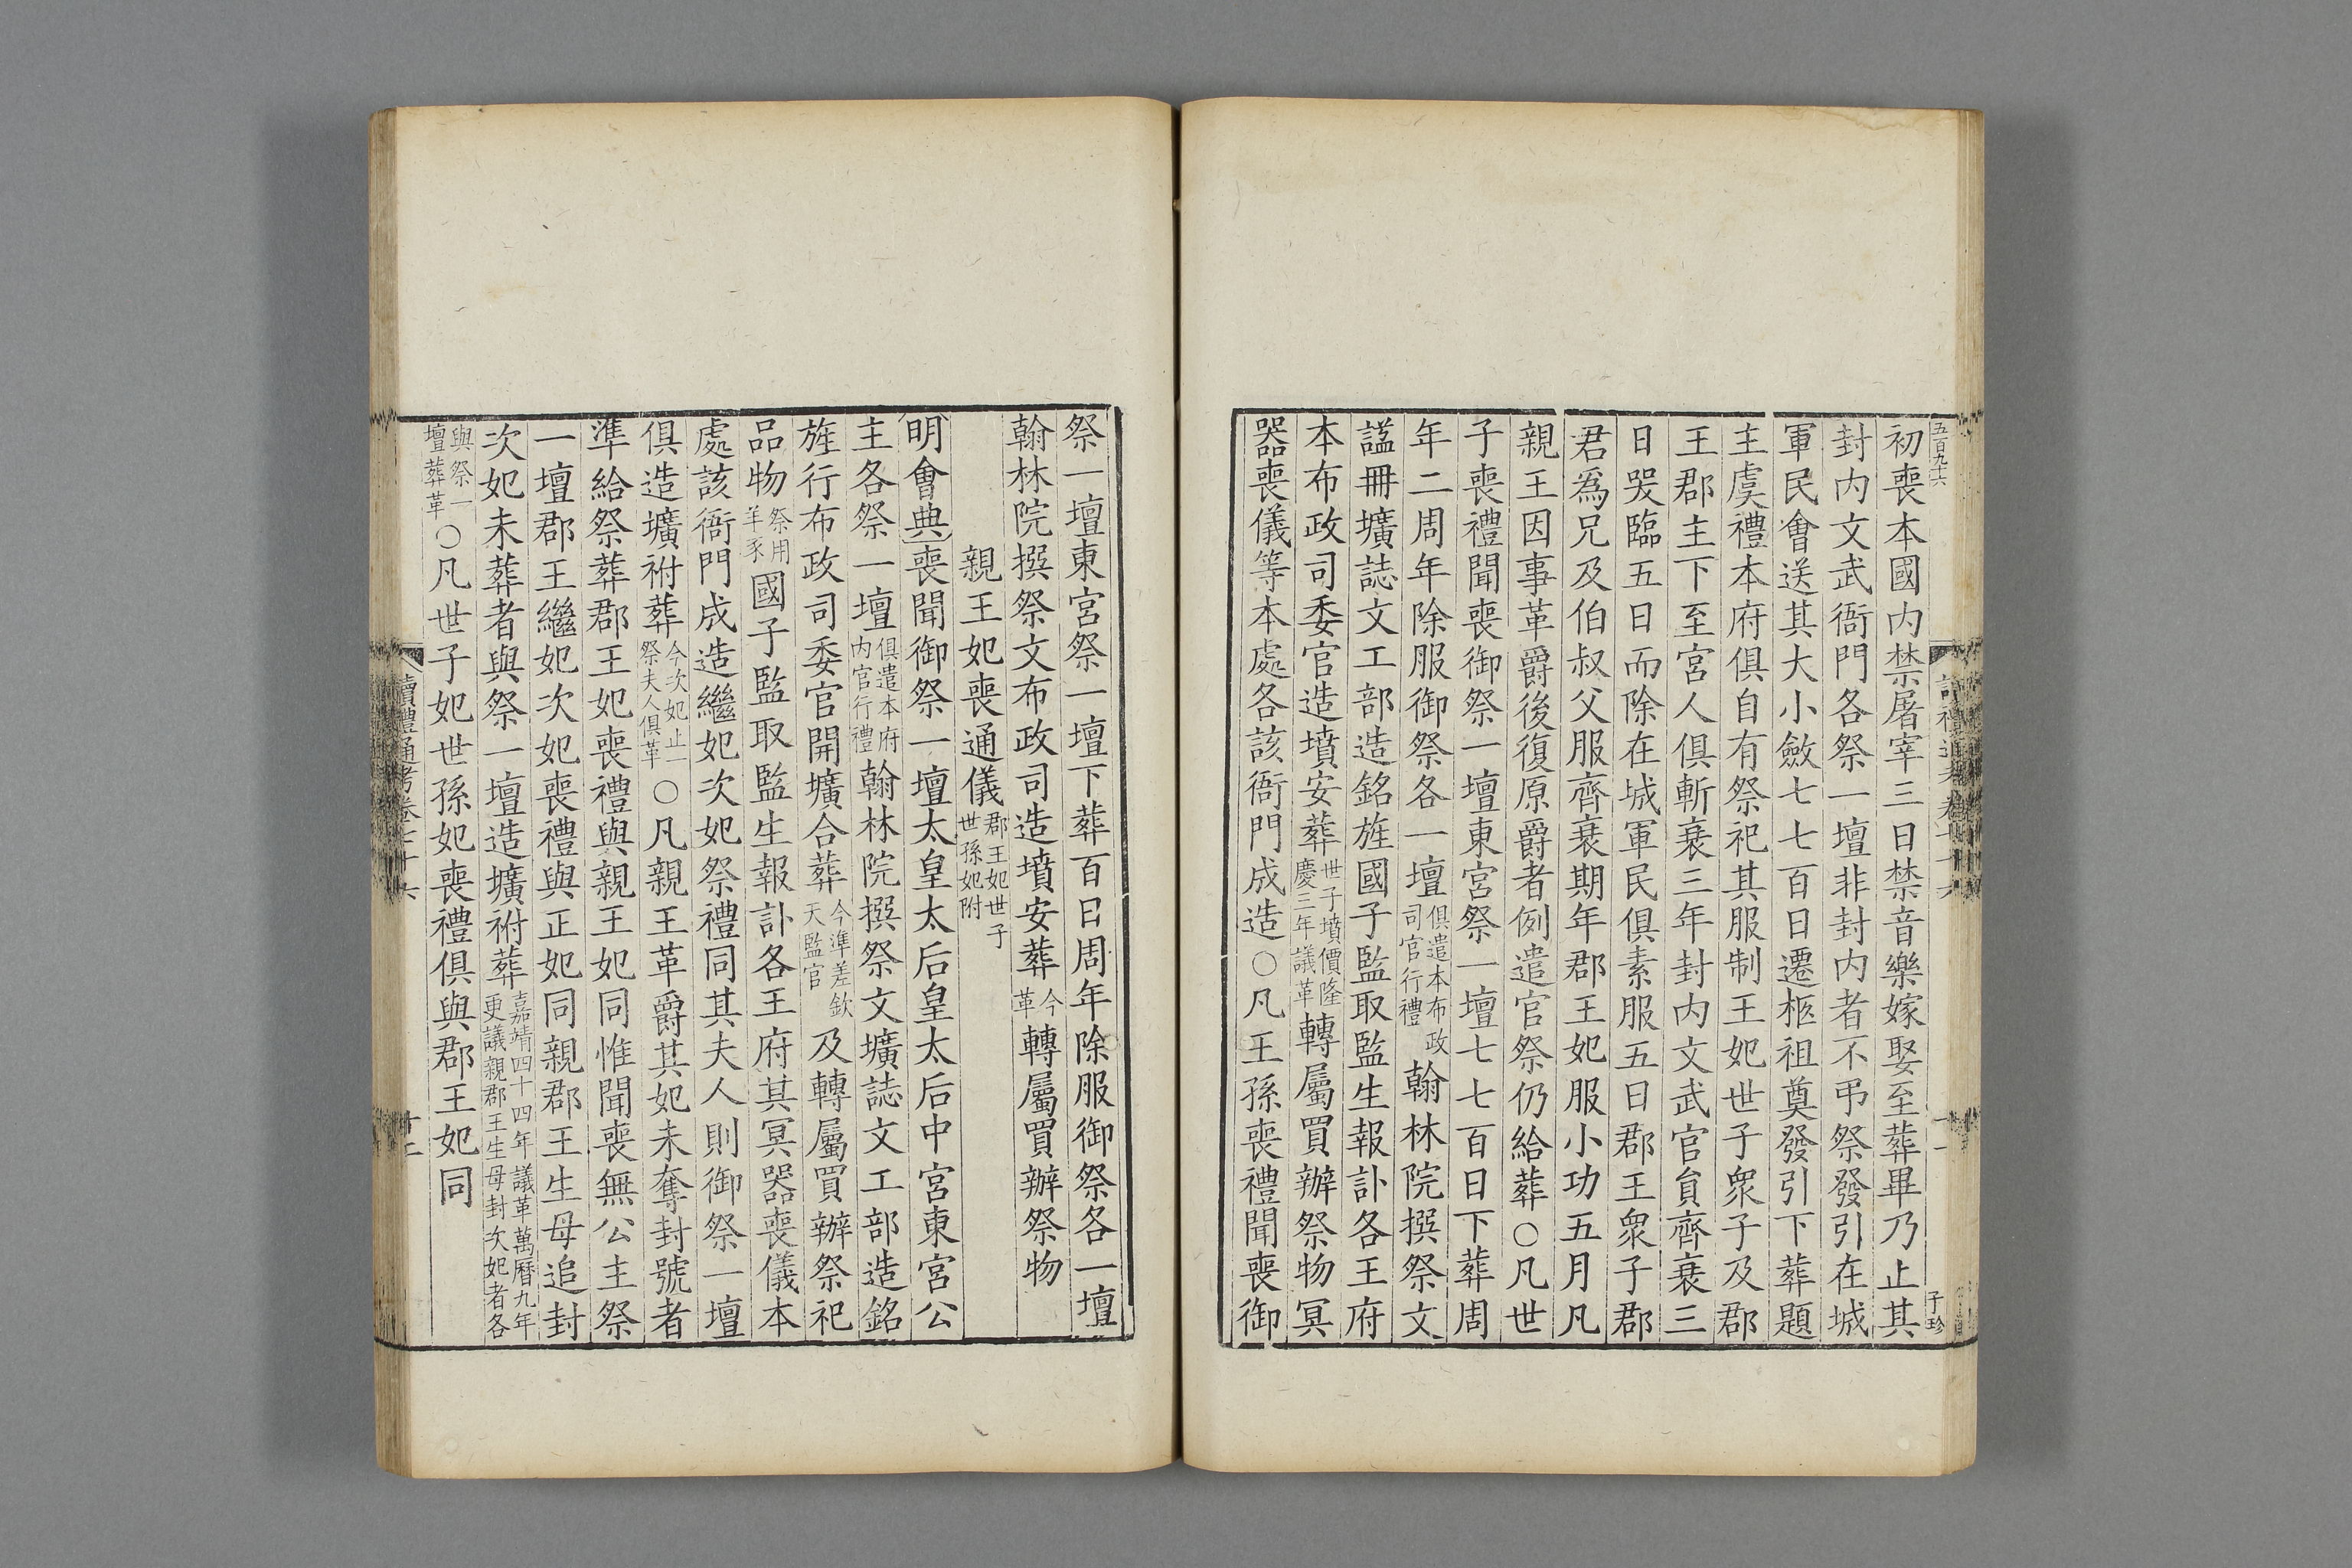 五百九十六
子珍
初喪本國内禁屠宰三日禁音樂嫁娶至葬畢乃止其
封内文武衙門各祭一壇非封内者不弔祭發引在城
軍民會送其大小斂七七百日遷柩祖奠發引下葬題
主虞禮本府俱自有祭祀其服制王妃世子衆子及郡
王郡主下至宮人俱斬衰三年封内文武官員齊衰三
日哭臨五日而除在城軍民俱素服五日郡王衆子郡
君爲兄及伯叔父服齊衰期年郡王妃服小功五月凡
親王因事革爵後復原爵者例遣官祭仍給葬○凡世
子喪禮聞喪御祭一壇東宮祭一壇七七百日下葬周
年二周年除服御祭各一壇俱遣本布政司官行禮翰林院撰祭文
諡冊壙誌文工部造銘旌國子監取監生報訃各王府
本布政司委官造墳安葬世子墳價隆慶三年議革轉屬買辦祭物冥
器喪儀等本處各該衙門成造○凡王孫喪禮聞喪御
祭一壇東宮祭一壇下葬百日周年除服御祭各一壇
翰林院撰祭文布政司造墳安葬今革轉屬買辦祭物
親王妃喪通儀郡王妃世子世孫妃附
明會典喪聞御祭一壇太皇太后皇太后中宮東宮公
主各祭一壇俱遣本府内官行禮翰林院撰祭文壙誌文工部造銘
旌行布政司委官開壙合葬今準差欽天監官及轉屬買辦祭祀
品物祭用羊豕國子監取監生報訃各王府其冥器喪儀本
處該衙門成造繼妃次妃祭禮同其夫人則御祭一壇
俱造壙祔葬今次妃止一祭夫人俱革○凡親王革爵其妃未奪封號者
準給祭葬郡王妃喪禮與親王妃同惟聞喪無公主祭
一壇郡王繼妃次妃喪禮與正妃同親郡王生母追封
次妃未葬者與祭一壇造壙祔葬嘉靖四十四年議革萬曆九年更議親郡王生母封次妃者各
與祭一壇葬革○凡世子妃世孫妃喪禮俱與郡王妃同
讀禮通考卷七十六
十二